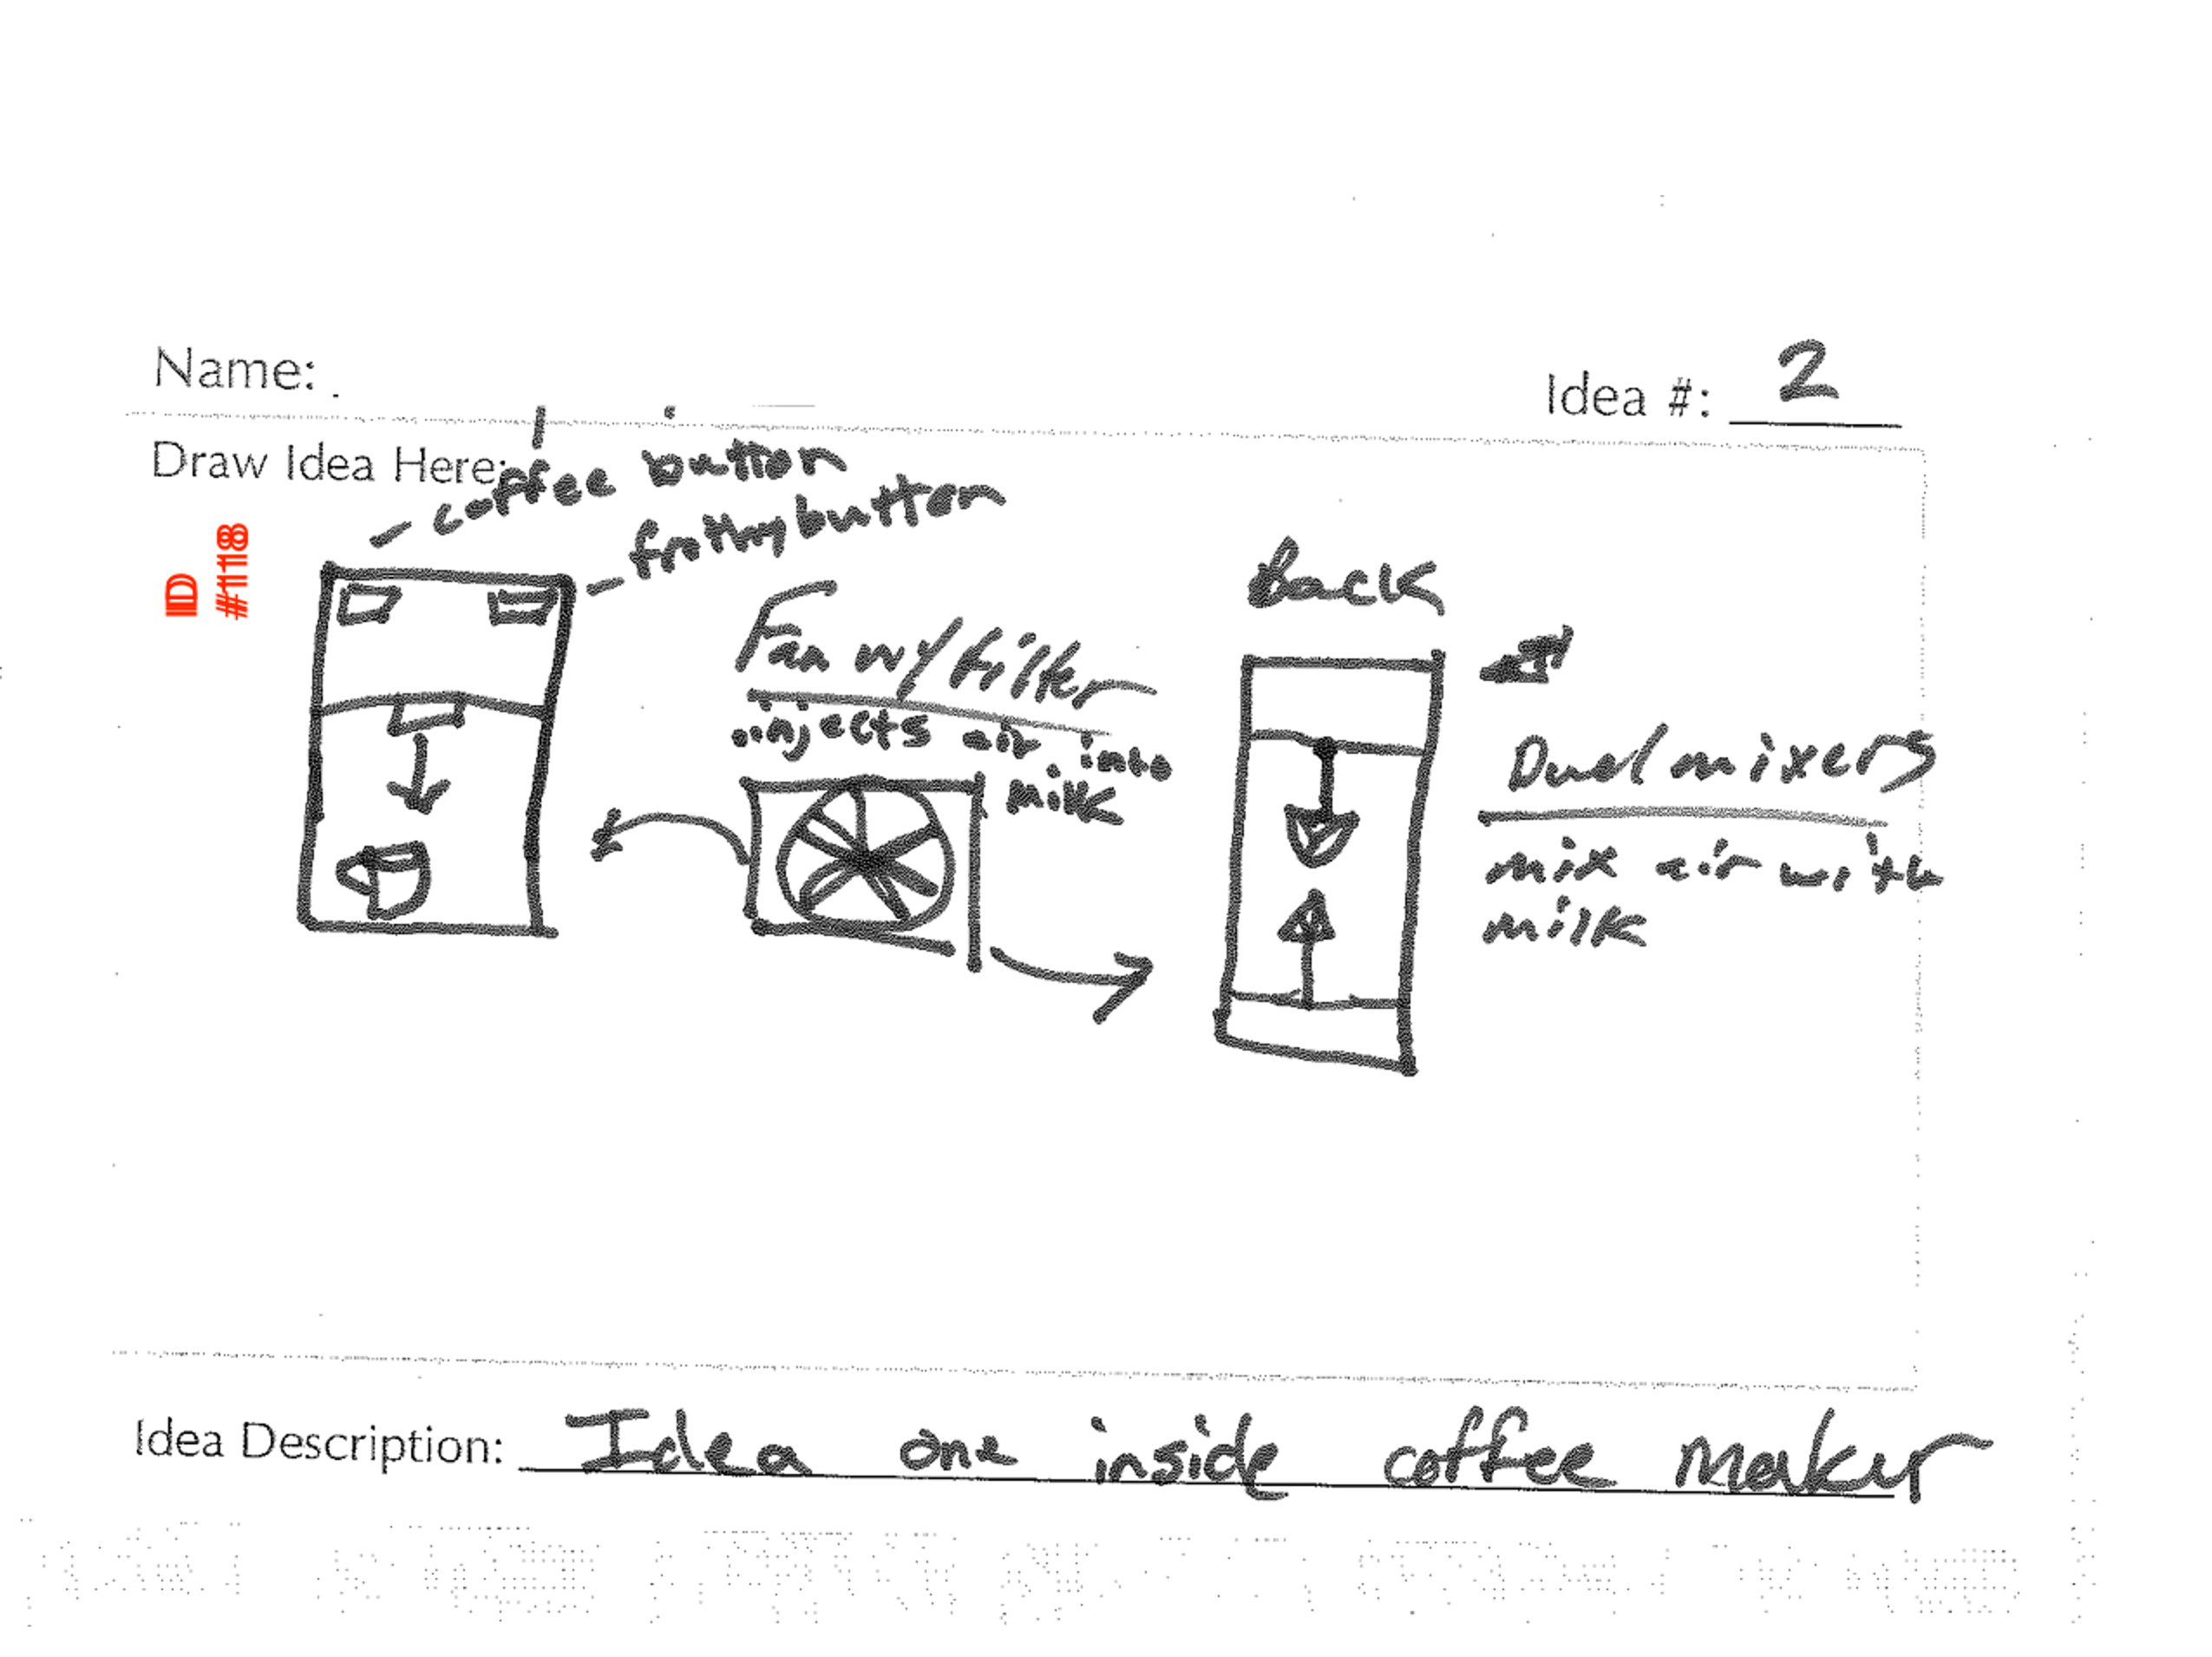 Name:
Idea #: 2
Draw Idea Here:
- coffee button
- frothy button
ID
#1118
Fan w/ filter
injects air into
milk
Back
Dual mixers
mix air with
milk
Idea Description: Idea one inside coffee maker